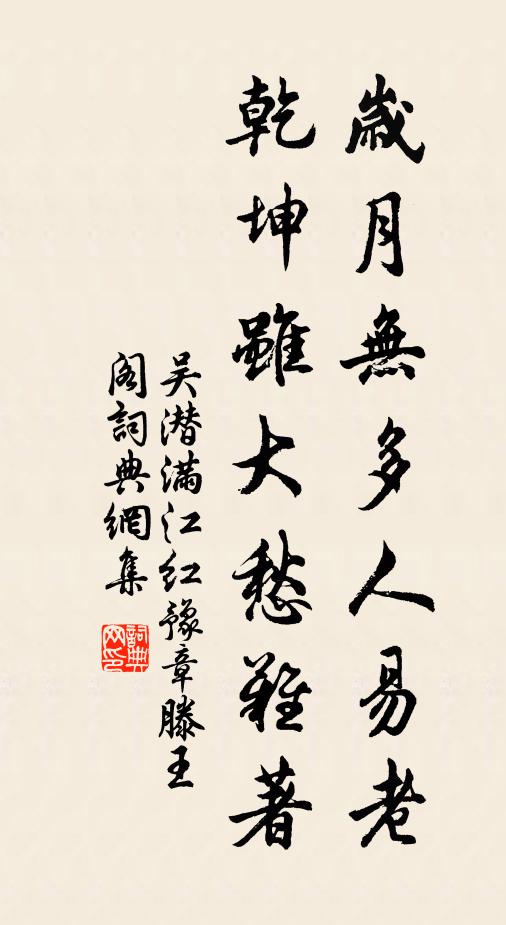 歲月無多人易老
乾坤雖大愁難著
吴潜满江红豫章滕王
阁詞典網集
詞典
网印